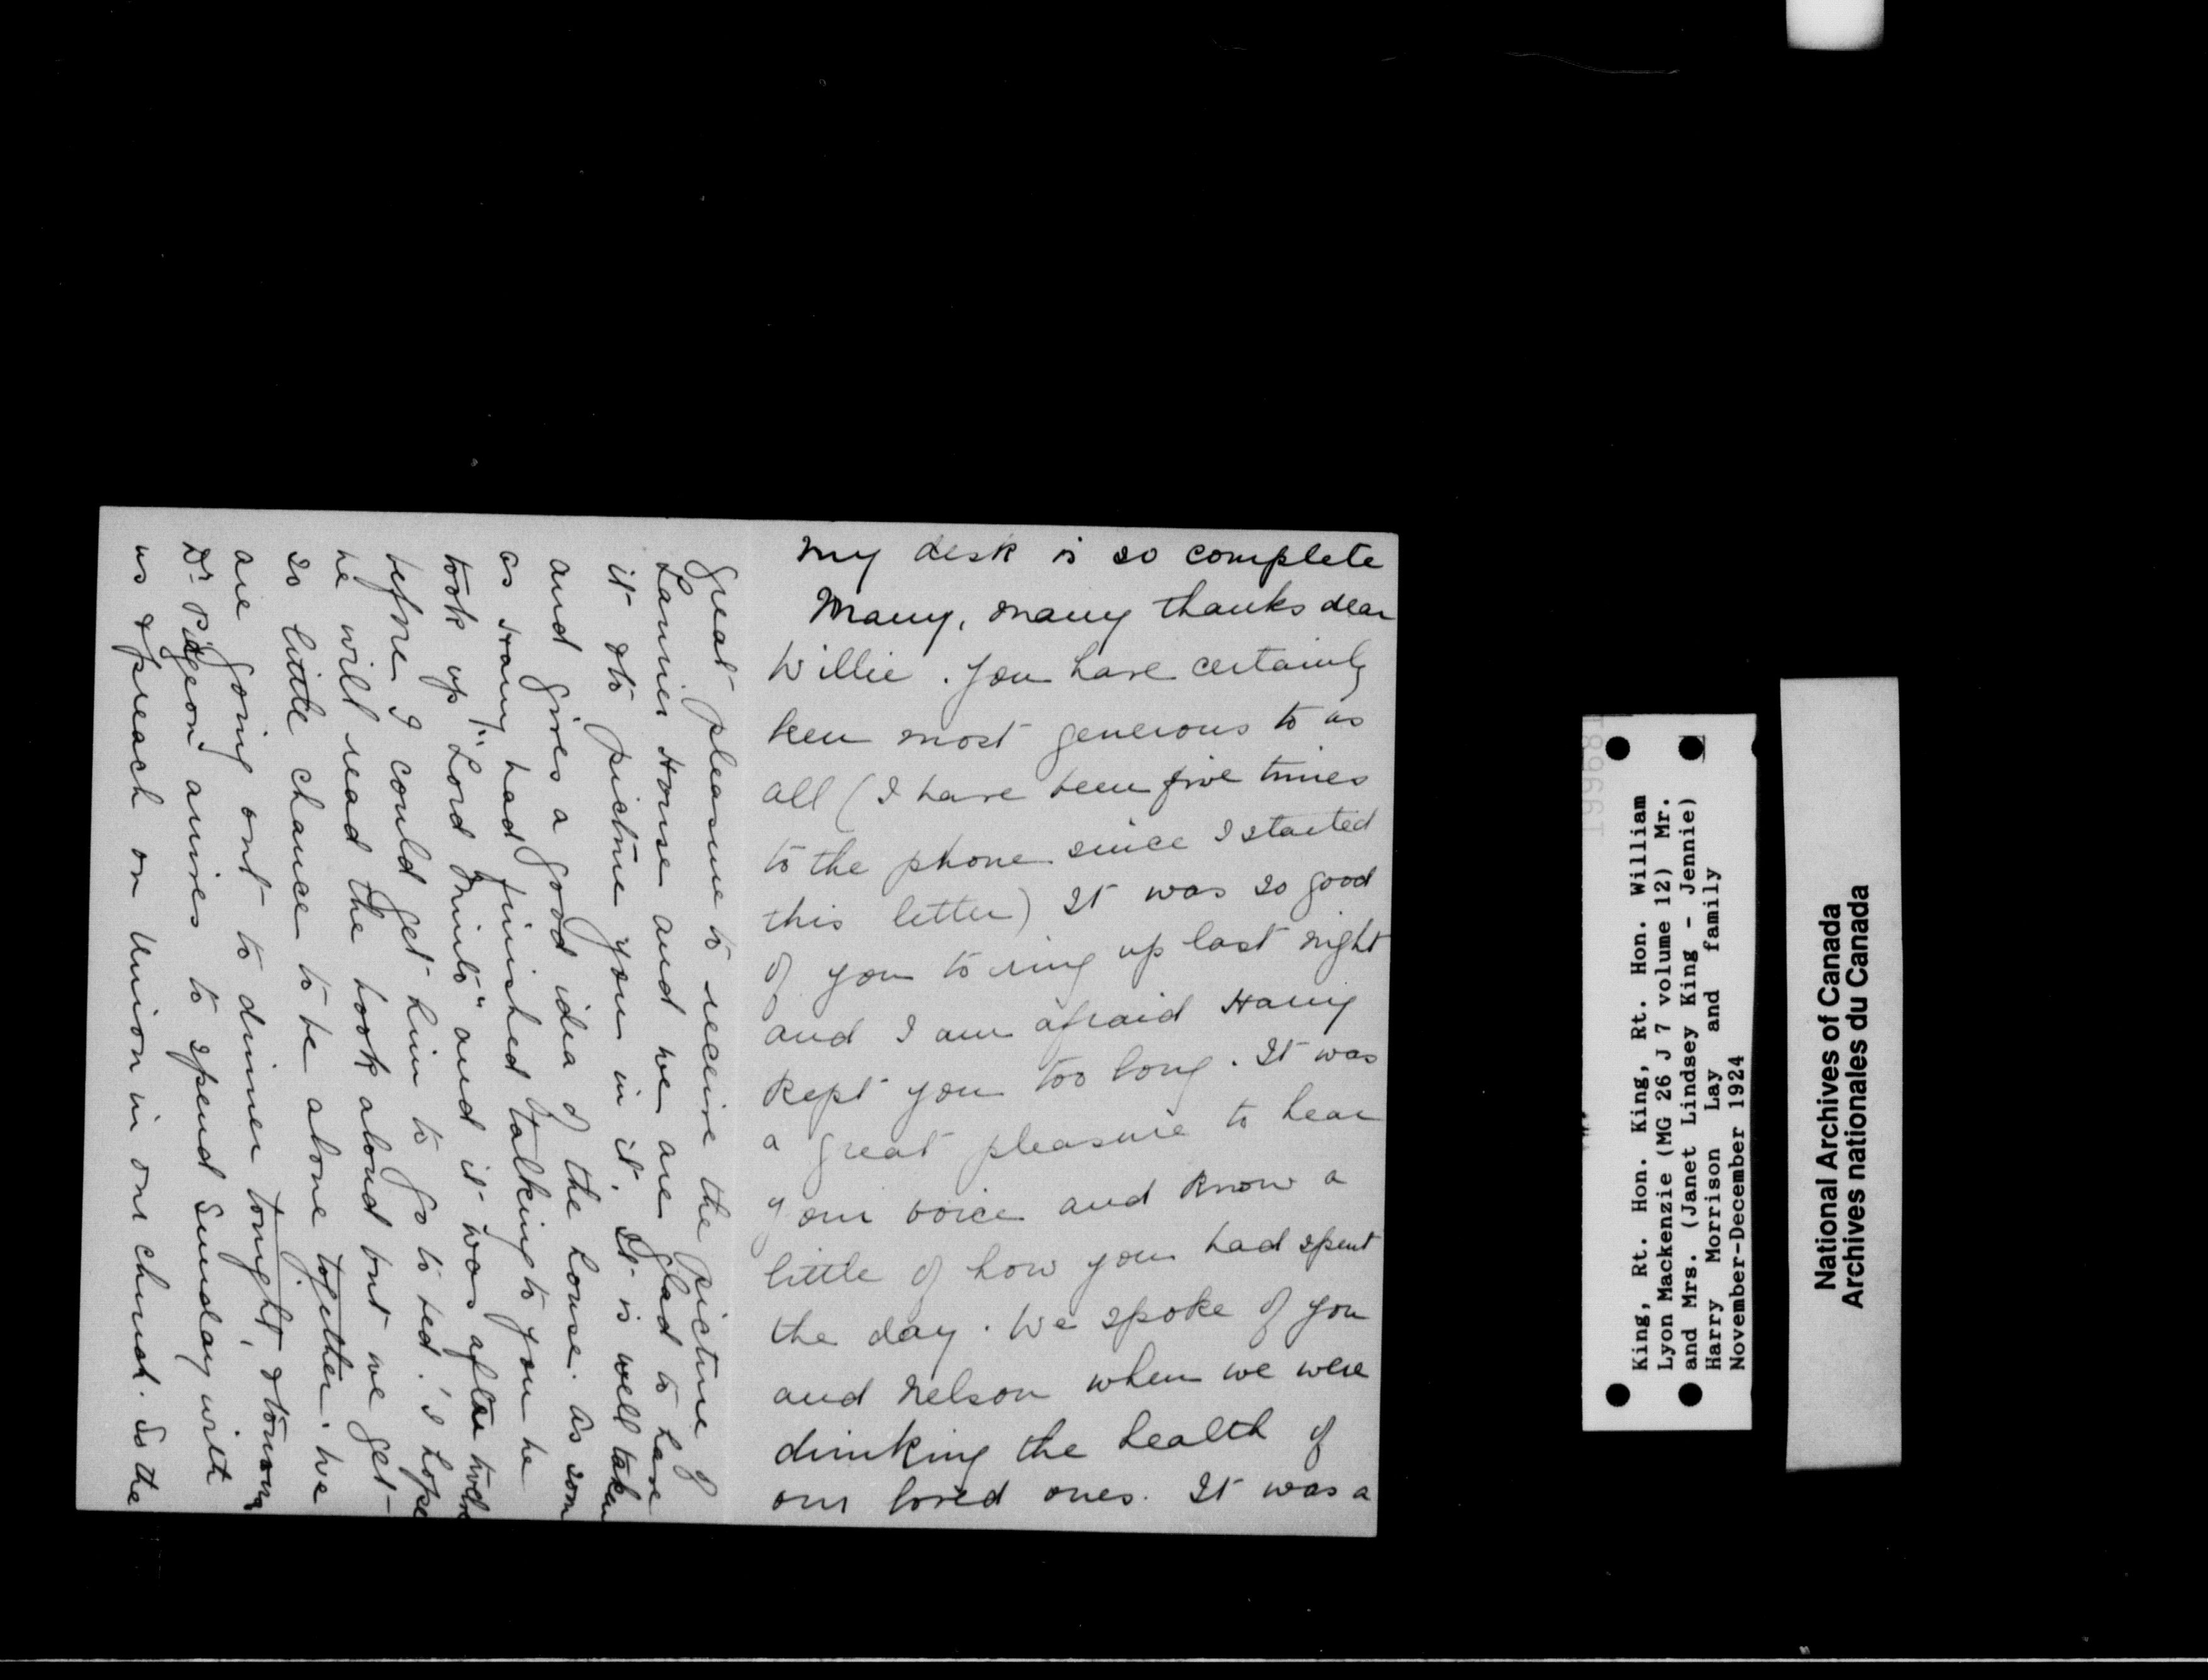 my desk is so complete
Many, many thanks dear
Willie. You have certainly
been most generous to us
all (I have been five times
to the phone since I started
this letter) It was so good
of you to ring up last night
and I am afraid Harry
kept you too long. It was
a great pleasure to hear
your voice and know a
little of how you had spent
the day. We spoke of you
and Nelson when we were
drinking the health of
our loved ones. It was a
great pleasure to receive the picture of
Laurier House and we are glad to have
it & to picture you in it. It is well taken
and gives a good idea of the house. As soon
as Harry had finished talking to you he
took up "Lord Minto" and it was after twelve
before I could get him to go to bed. I hope
he will read the book aloud but we get
so little chance to be alone together. We
are going out to dinner tonight, & tomorrow
Dr. Pidgeon arrives to spend Sunday with
us & preach on Union in our church. So the
King, Rt. Hon. King, Rt. Hon. William
Lyon Mackenzie (MG 26 J 7 volume 12) Mr.
and Mrs. (Janet Lindsey King - Jennie)
Harry Morrison Lay and family
November-December 1924
National Archives of Canada
Archives nationales du Canada